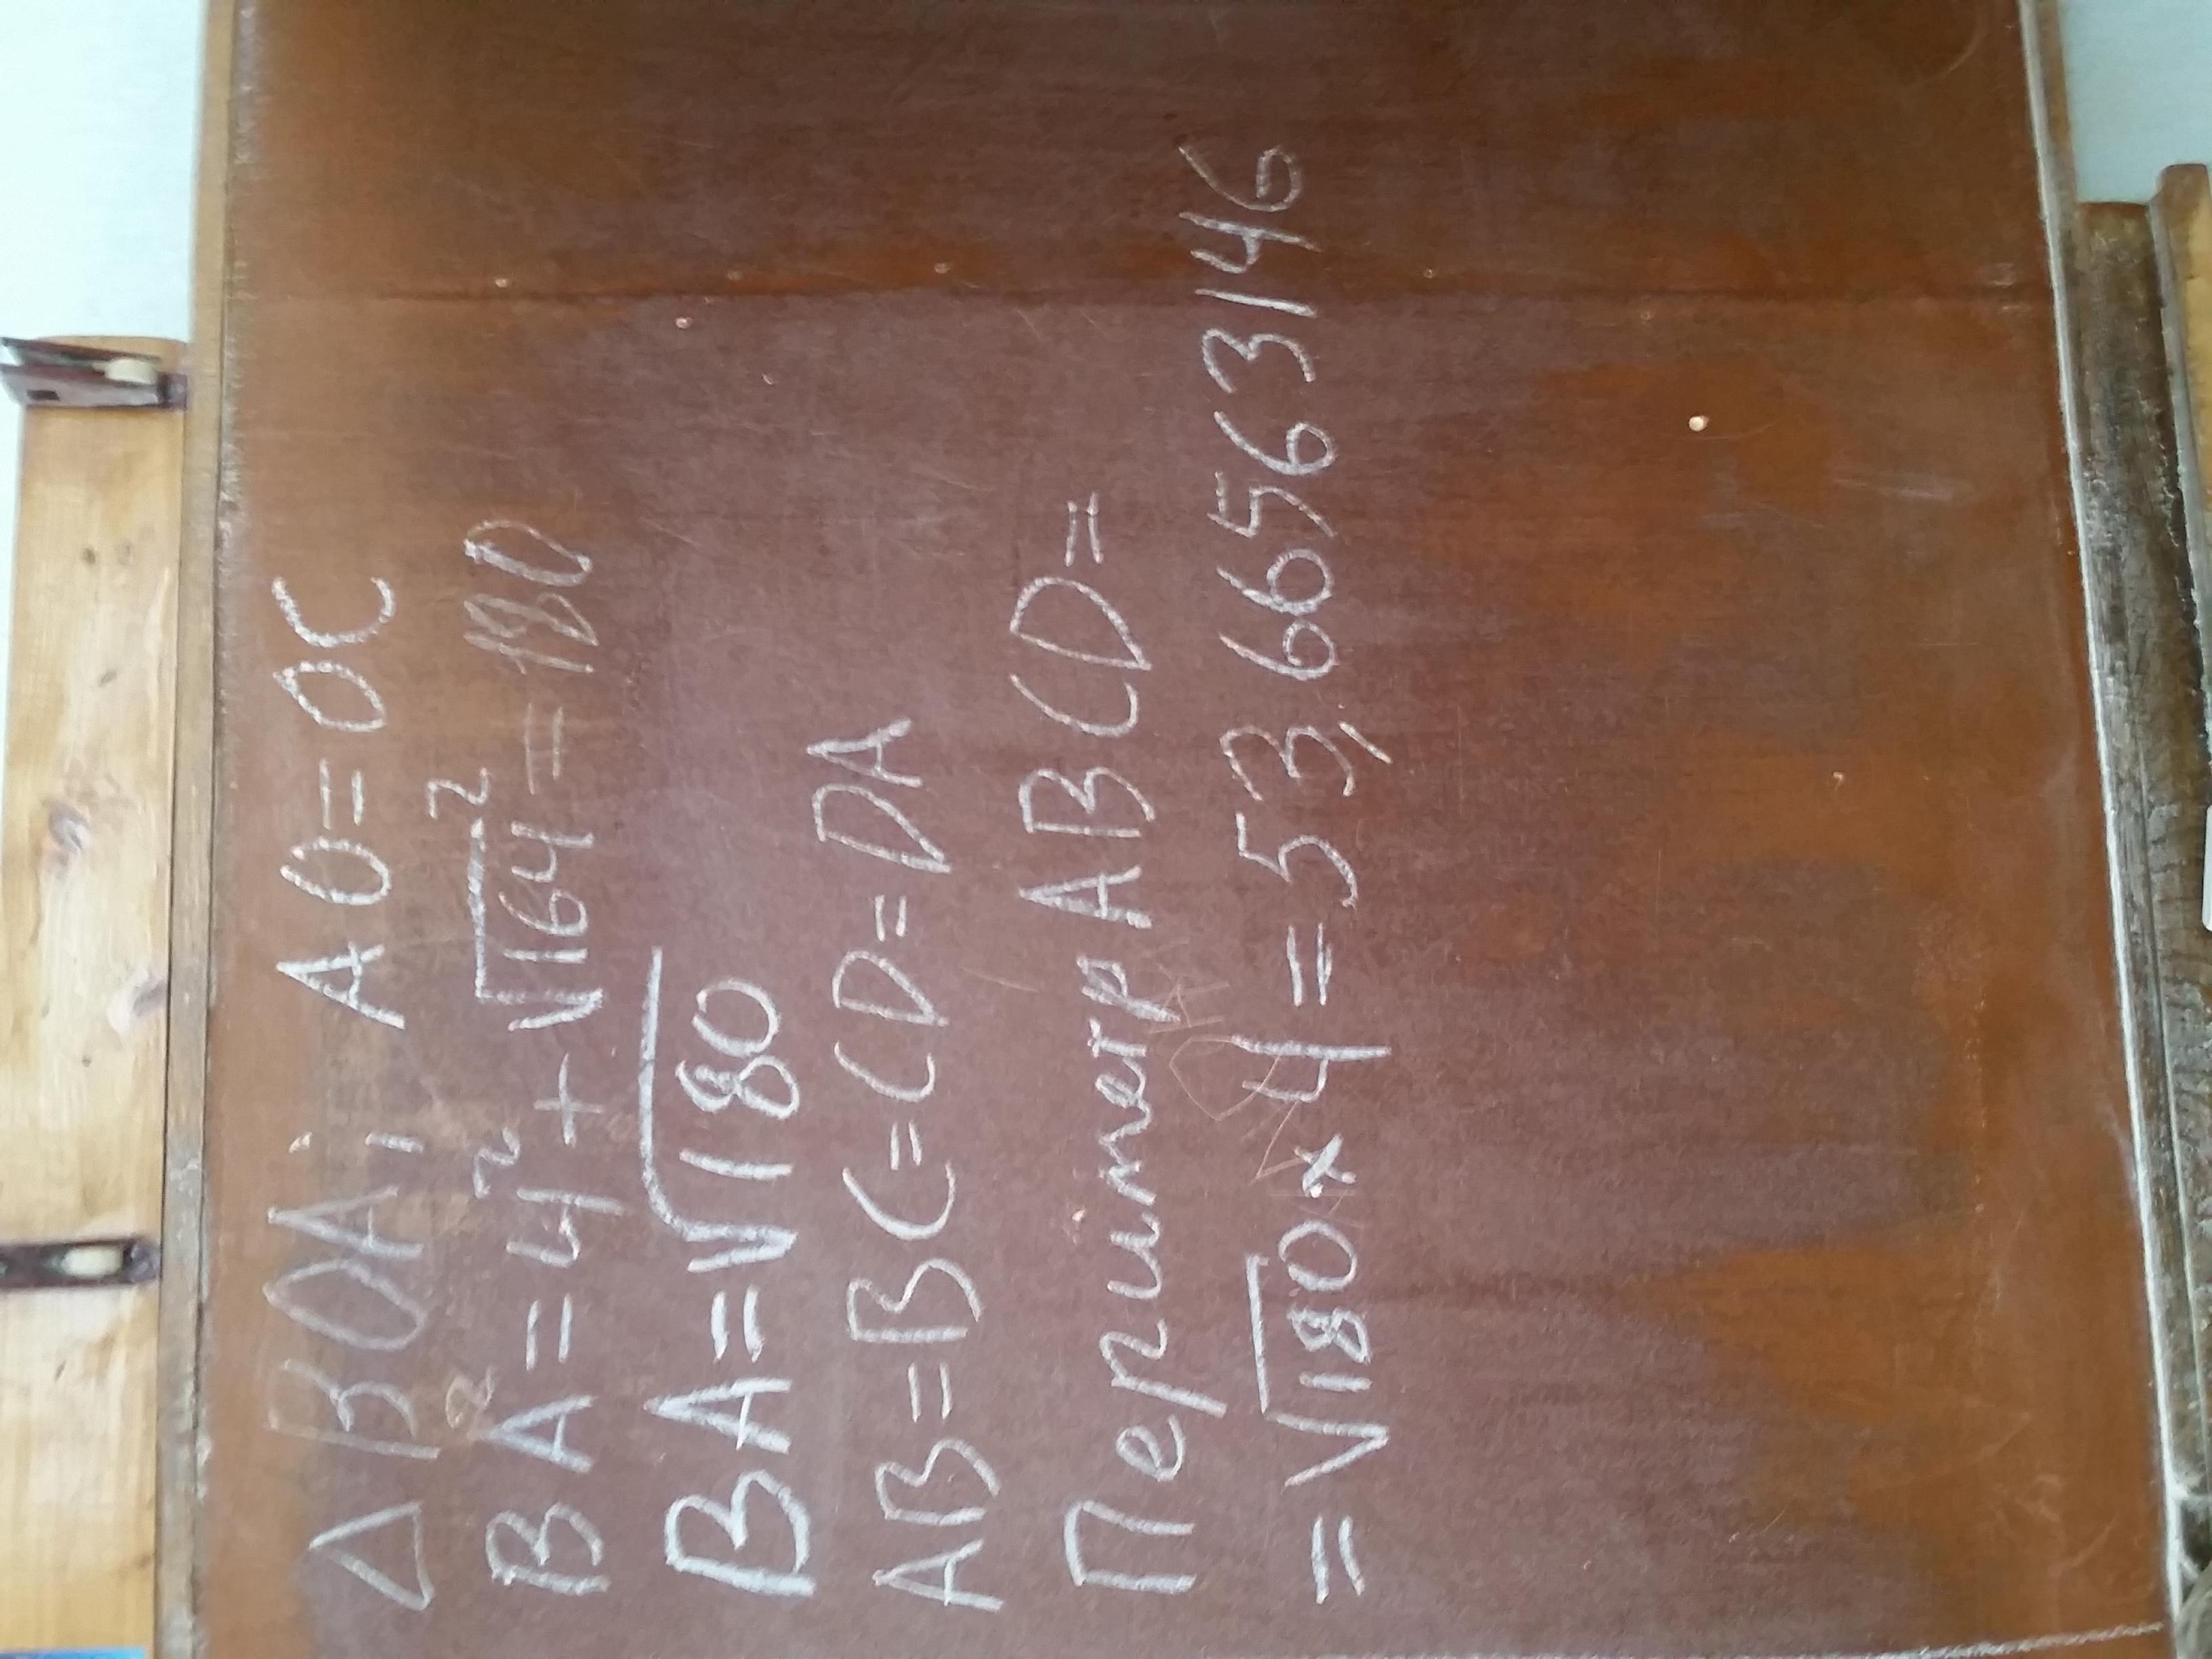 △BOA; AO=OC
BA²=4²+√164²=180
BA=√180
AB=BC=CD=DA
Периметр ABCD=
=√180×4=53,665563146